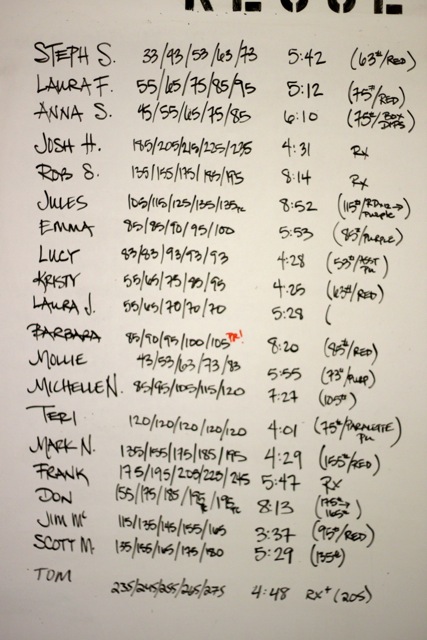 STEPH S. 33/43/53/63/73 5:42 (63#/RED)
LAURA F. 55/65/75/85/95 5:12 (75#/RED)
ANNA S. 45/55/65/75/85 6:10 (75#/BOX DIPS)
JOSH H. 185/205/215/225/235 4:31 RX
ROB S. 135/155/175/185/195 8:14 RX
JULES 105/115/125/135/135 8:52 (115#/RED → PURPLE)
EMMA 85/85/90/95/100 5:53 (85#/PURPLE)
LUCY 83/83/93/93/93 4:28 (53#/ASST PU)
KRISTY 55/65/75/85/95 4:25 (63#/RED)
LAURA J. 55/65/70/70/70 5:28 (
BARBARA 85/90/95/100/105 PR! 8:20 (85#/RED)
MOLLIE 43/53/63/73/83 5:55 (73#/PURP)
MICHELLE N. 85/95/105/115/120 7:27 (105#)
TERI 120/120/120/120/120 4:01 (75#/PARALETTE PU)
MARK N. 135/155/175/185/195 4:29 (155#/RED)
FRANK 175/195/205/225/245 5:47 RX
DON 155/175/185/195/195 8:13 (175# → 165#)
JIM Mc 115/135/145/155/165 3:37 (95#/RED)
SCOTT M. 135/155/165/175/180 5:29 (135#)
TOM 235/245/255/265/275 4:48 RX+ (205)